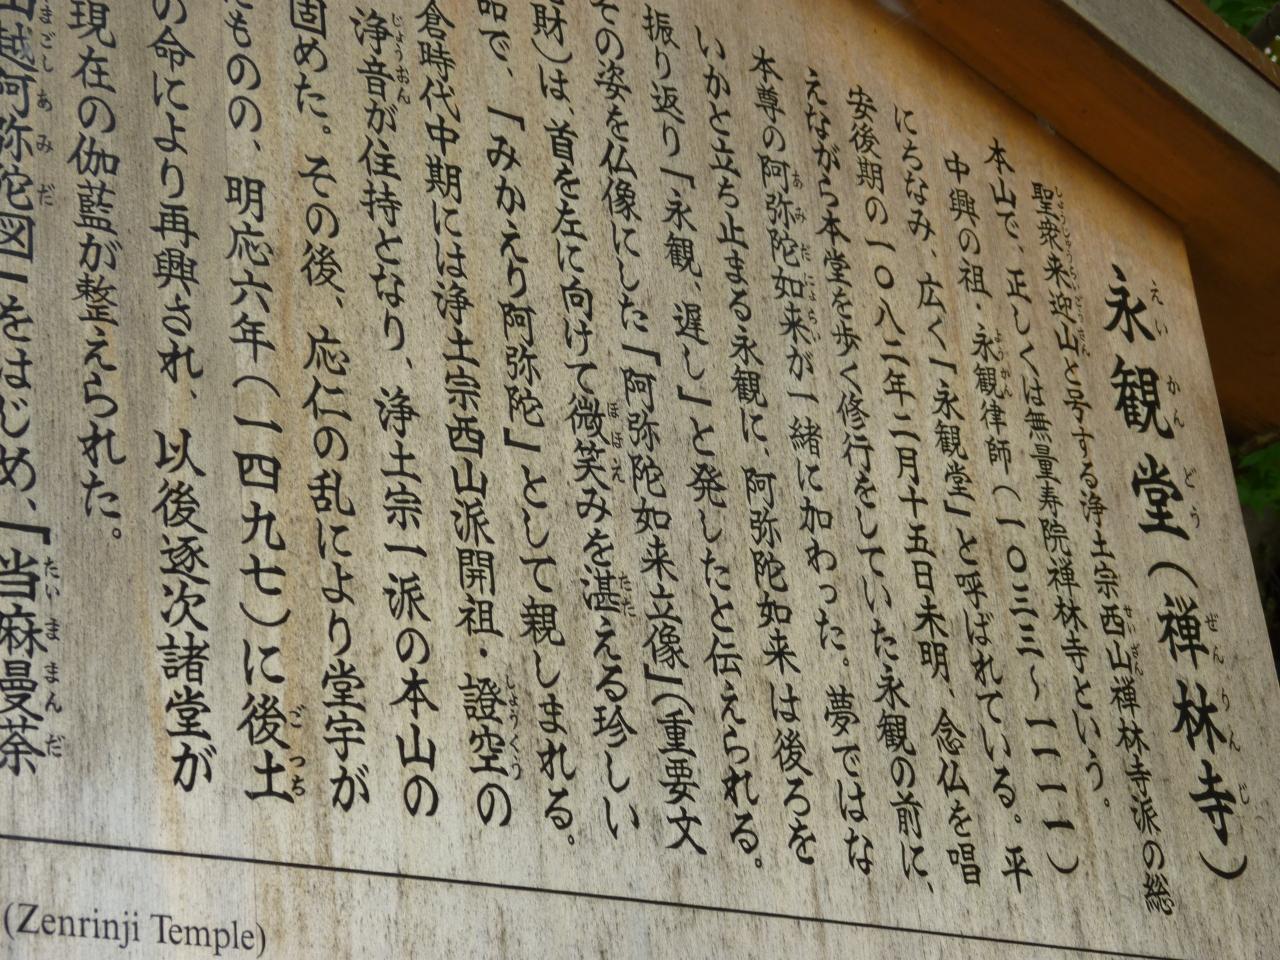 永観堂（禅林寺）
聖衆来迎山と号する浄土宗西山禅林寺派の総
本山で、正しくは無量寿院禅林寺という。
中興の祖・永観律師（一〇三三～一一一一）
にちなみ、広く「永観堂」と呼ばれている。平
安後期の一〇八二年二月十五日未明、念仏を唱
えながら本堂を歩く修行をしていた永観の前に、
本尊の阿弥陀如来が一緒に加わった。夢ではな
いかと立ち止まる永観に、阿弥陀如来は後ろを
振り返り「永観、遅し」と発したと伝えられる。
その姿を仏像にした「阿弥陀如来立像」（重要文
財）は、首を左に向けて微笑みを湛える珍しい
品で、「みかえり阿弥陀」として親しまれる。
倉時代中期には浄土宗西山派開祖・證空の
浄音が住持となり、浄土宗一派の本山の
固めた。その後、応仁の乱により堂宇が
たものの、明応六年（一四九七）に後土
の命により再興され、以後逐次諸堂が
現在の伽藍が整えられた。
山越阿弥陀図」をはじめ、「当麻曼荼
(Zenrinji Temple)